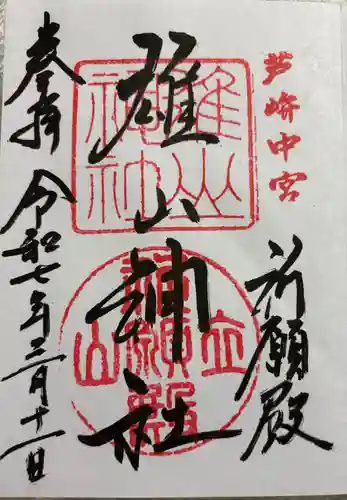 芦峅中宮
祈願殿
雄山神社
奉拝
令和七年三月十一日
雄山神社
立山祈願殿